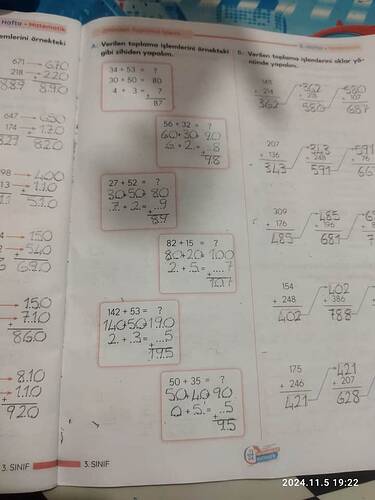 Hafta - Matematik
emlerini örnekteki
671 → 670
218 → 220
889 890
647 → 650
174 → 170
821 820
98 → 400
13 → 110
510
→ 150
→ 540
690
→ 150
→ 710
860
→ 810
→ 110
920
3. SINIF
A. Verilen toplama işlemlerini örnekteki
gibi zihiden yapalım.
34 + 53 = ?
30 + 50 = 80
4 + 3 = ?
+
87
56 + 32 = ?
60+30=90
6+2=8
+
98
27 + 52 = ?
30+50=80
7+2=9
+
89
82 + 15 = ?
80+20=100
2+5=7
+
107
142 + 53 = ?
140+50=190
2+3=5
+
195
50 + 35 = ?
50+40=90
0+5=5
+
95
3. SINIF
Verilen toplama işlemlerini oklar yö-
nünde yapalım.
+ 214
362
362
+ 218
580
580
+ 107
687
207
+ 136
343
343
+ 248
591
591
+ 76
309
+ 176
485
485
+ 196
681
154
+ 248
402
402
+ 386
788
175
+ 246
421
421
+ 207
628
2024.11.5 19:22